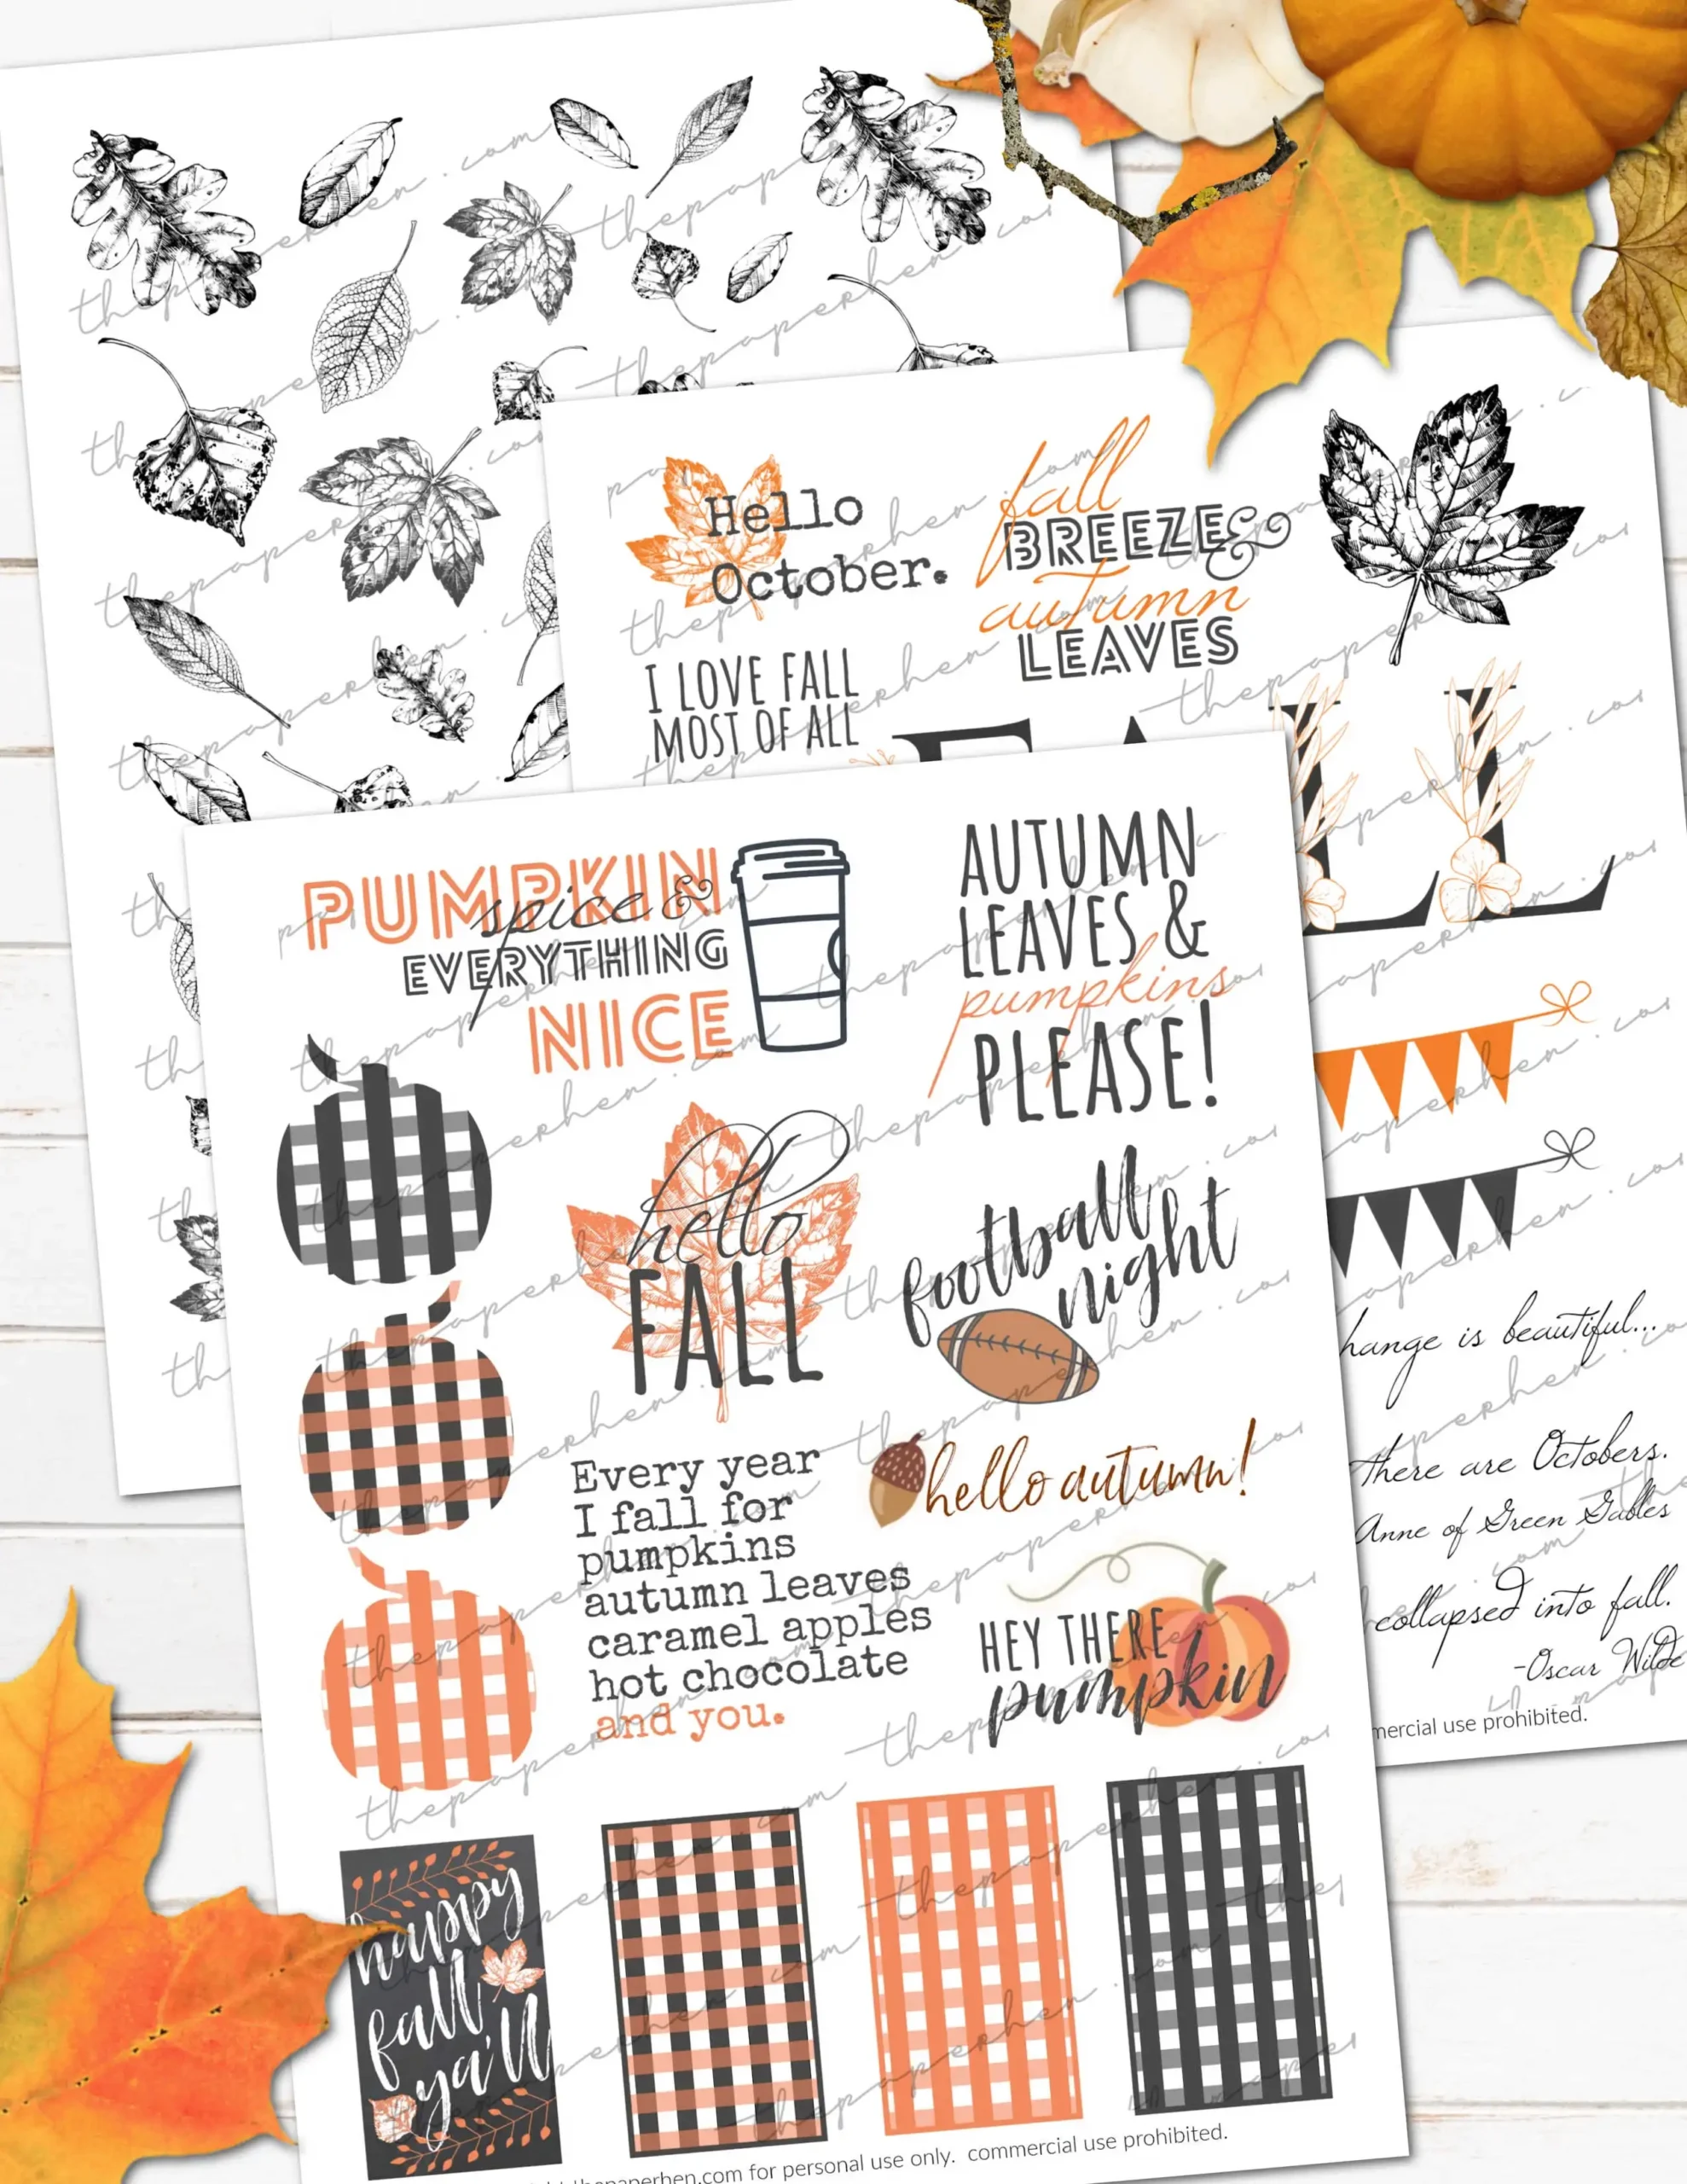 Hello
October.
fall
BREEZE &
autumn
LEAVES
I LOVE FALL
MOST OF ALL
FALL
hange is beautiful...
there are Octobers.
Anne of Green Gables
collapsed into fall.
-Oscar Wilde
mercial use prohibited.
PUMPKIN
spice &
EVERYTHING
NICE
AUTUMN
LEAVES &
pumpkins
PLEASE!
hello
FALL
football
night
hello autumn!
Every year
I fall for
pumpkins
autumn leaves
caramel apples
hot chocolate
and you.
HEY THERE
pumpkin
happy
fall
ya'll
thepaperhen.com for personal use only. commercial use prohibited.
thepaperhen.com